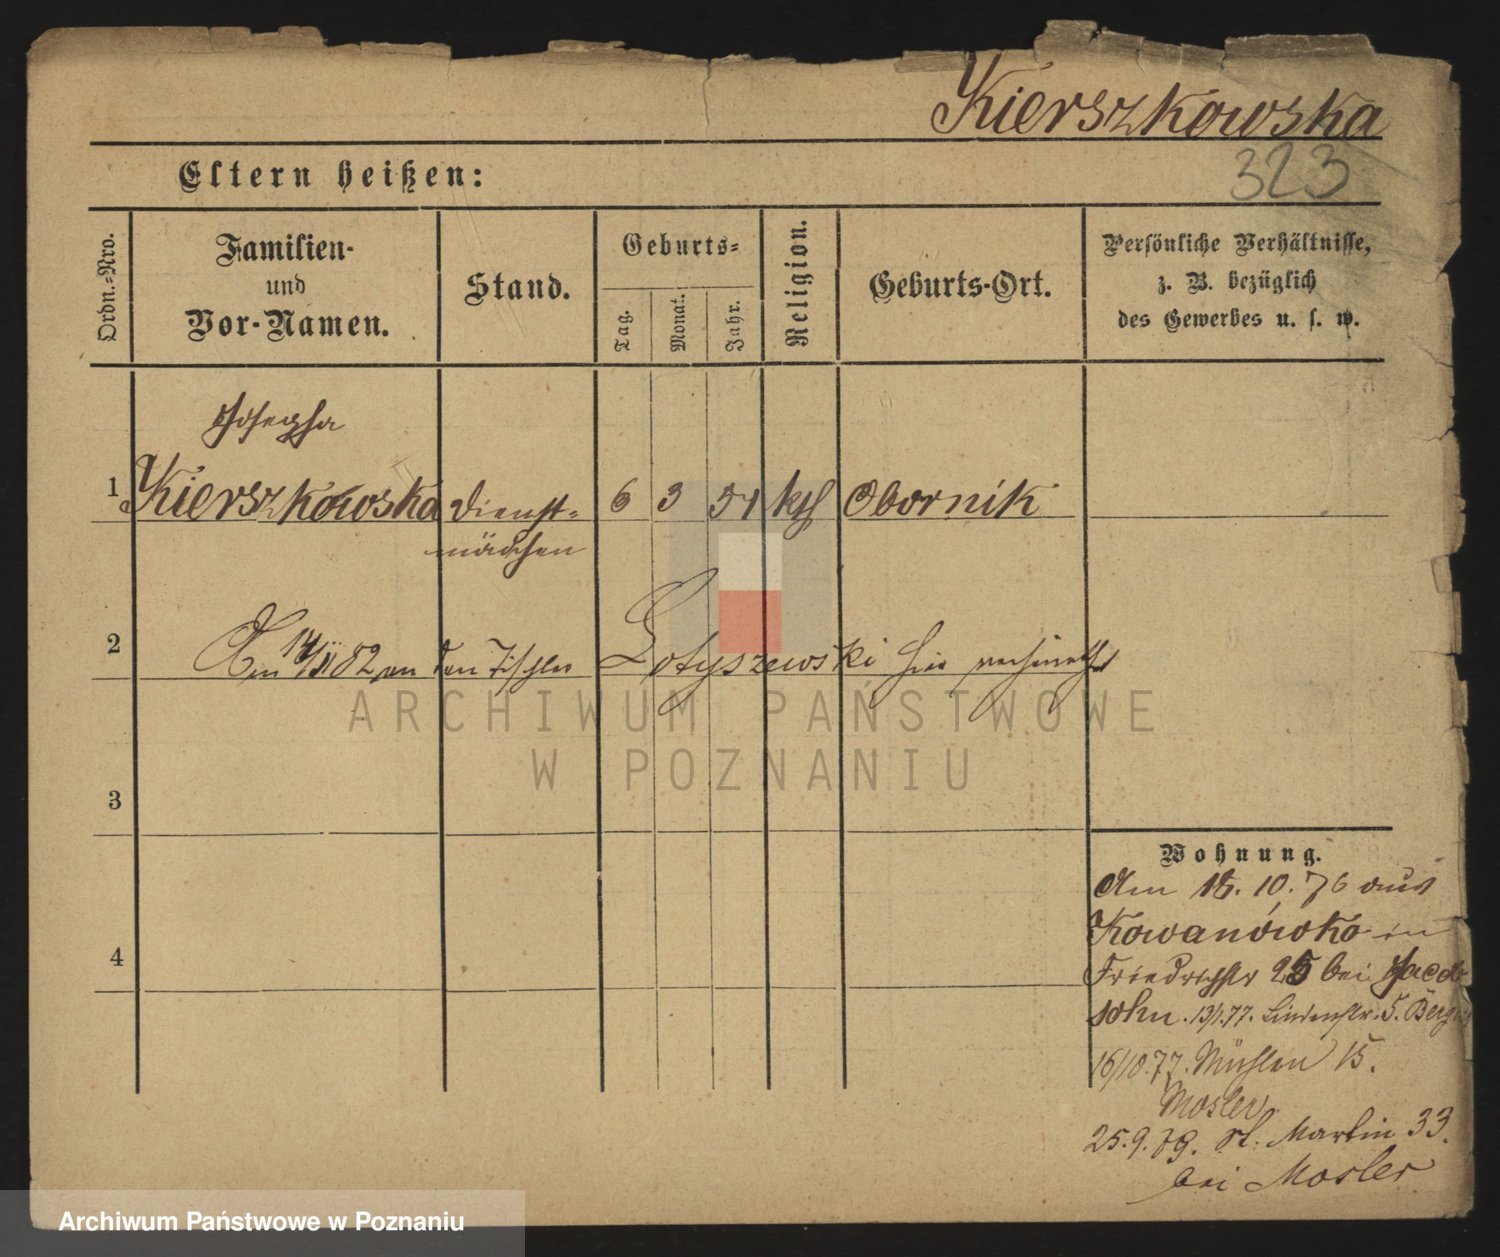 Kierszkowska
323
Eltern heißen:
Ordn.-Nro.
Familien-
und
Vor-Namen.
Stand.
Geburts-
Tag.
Monat.
Jahr.
Religion.
Geburts-Ort.
Persönliche Verhältnisse,
z. B. bezüglich
des Gewerbes u. s. w.
Josepha
1 Kierszkowska Dienst- 6 3 51 kth Obornik
mädchen
2 Am 14/II 82 an den Tischler Lotyszewski hier verheirathet
ARCHIWUM PAŃSTWOWE
W POZNANIU
3
4
Wohnung.
Am 18. 10. 76 aus
Kowanówko in
Friedrichstr 25 bei Jacob
sohn. 13/1.77. Lindenstr. 5. Berger
16/10.77. Mühlen 15.
Mosler
25.9.79. St. Martin 33.
bei Mosler
Archiwum Państwowe w Poznaniu